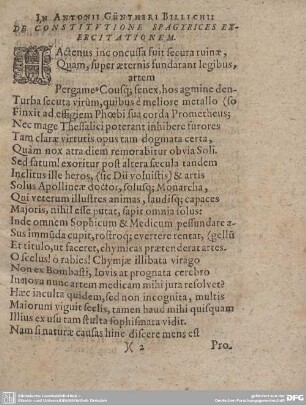 IN ANTONII GÜNTHERI BILLICHII
DE CONSTITVTIONE SPAGYRICES EX-
ERCITATIONEM.
HActenus inconcussa fuit secura ruinæ,
Quam, super æternis fundarant legibus,
artem
Pergameꝰ Cousq; senex. hos agmine den-
Turba secuta virûm, quibus è meliore metallo (so
Finxit ad effigiem Phœbi sua corda Prometheus;
Nec mage Thessalici poterant inhibere furores
Tam claræ virtutis opus tam dogmata certa,
Quàm nox atra diem remorabitur obvia Soli.
Sed fatum! exoritur post altera sæcula tandem
Inclitus ille heros, (sic Dii voluistis) & artis
Solus Apollineæ doctor, solusq; Monarcha,
Qui veterum illustres animas, laudisq; capaces
Majoris, nihil esse putat, sapit omnia solus:
Inde omnem Sophicum & Medicum pessundare a-
Sus immûda cupit, rostroq; evertere tentat, (gellû
Et titulo, ut faceret, chymicas prætenderat artes.
O scelus! o rabies! Chymiæ illibata virago
Non ex Bombasti, Iovis at prognata cerebro
In nova nunc artem medicam mihi jura resolvet?
Hæc inculta quidem, sed non incognita, multis
Maiorum viguit seclis, tamen haud mihi quisquam
Illius ex usu tam stulta sophismata vidit.
Nam si naturæ causas hinc discere mens est
)( 2 Pro-